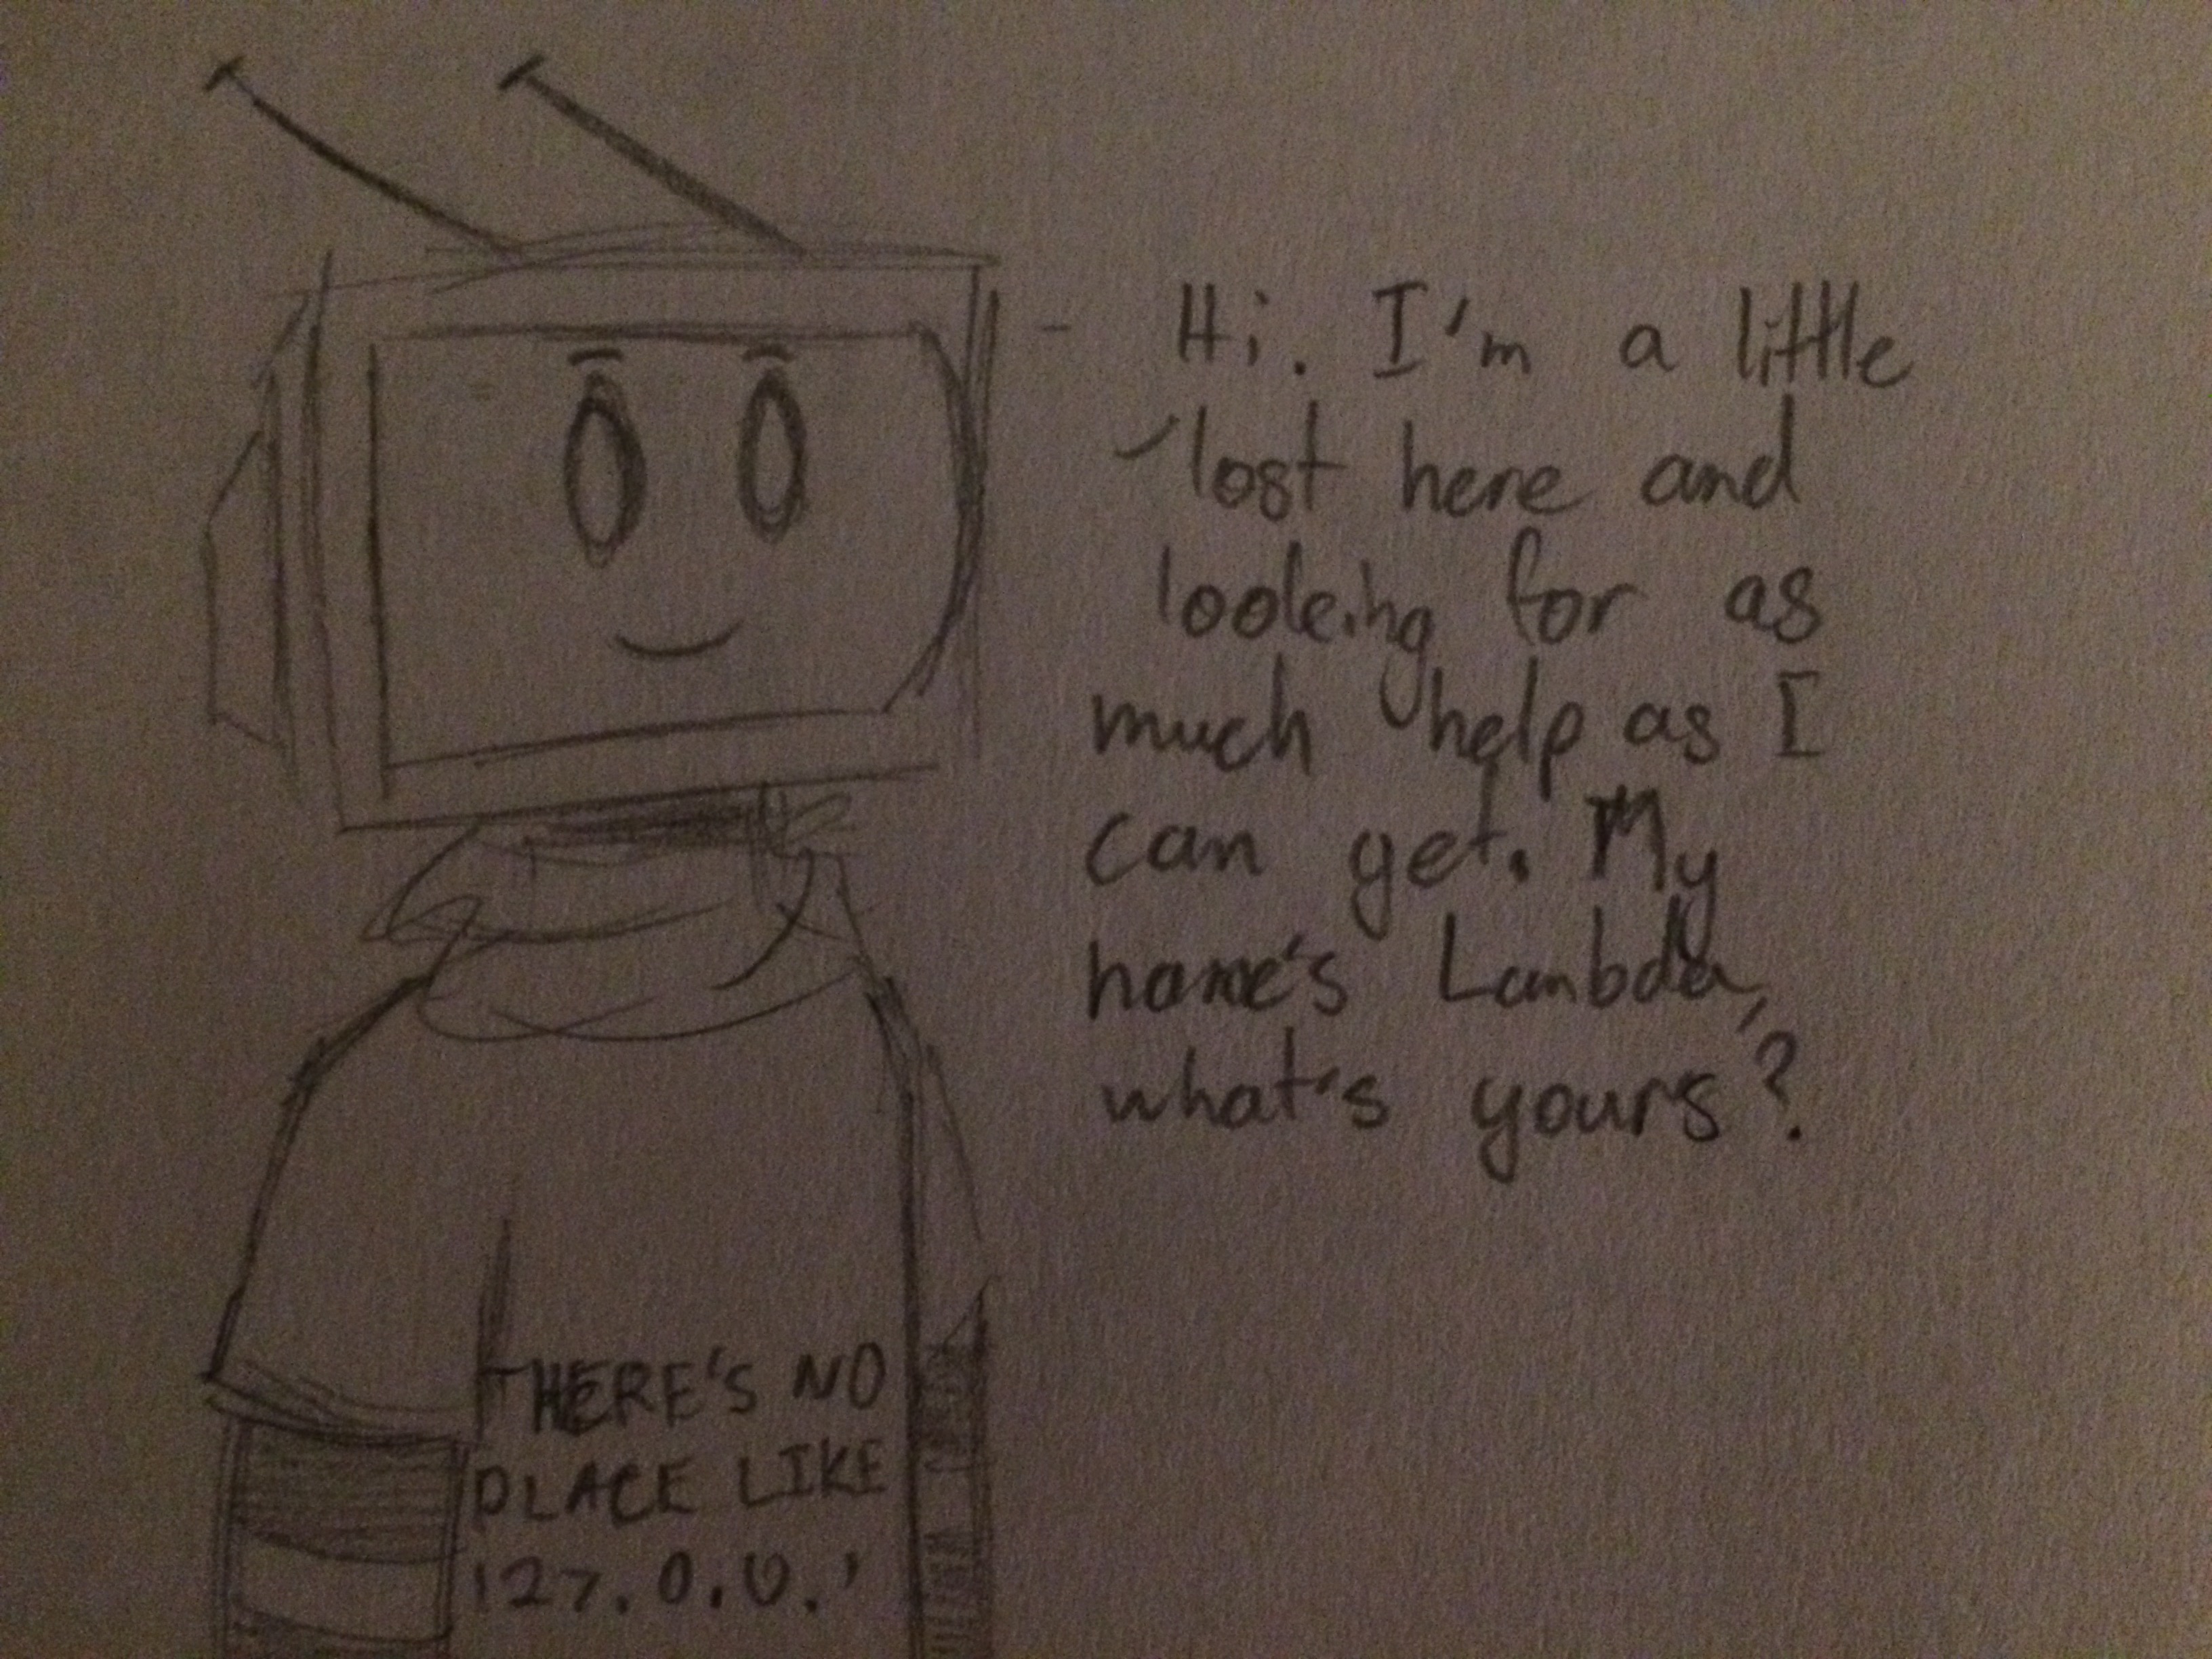 Hi. I'm a little
lost here and
looking for as
much help as I
can get. My
name's Lambda,
what's yours?
THERE'S NO
PLACE LIKE
127.0.0.1